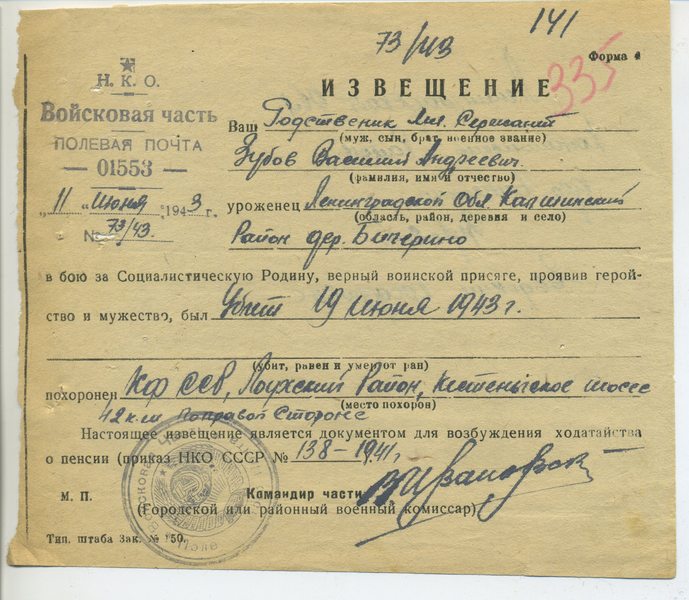 73/ИЗ 141
Форма 4
335
Н. К. О.
Войсковая часть
ПОЛЕВАЯ ПОЧТА
— 01553 —
„ 11 “ июня 1943 г.
№ 73/43.
ИЗВЕЩЕНИЕ
Ваш Родственник Мл. Сержант
(муж, сын, брат, военное звание)
Зубов Василий Андреевич.
(фамилия, имя и отчество)
уроженец Ленинградской Обл
(область, район, деревня и село)
Район дер.
в бою за Социалистическую Родину, верный воинской присяге, проявив герой-
ство и мужество, был Убит 19 июня 1943 г.
(убит, ранен и умер от ран)
похоронен КФ ССР, Лоухский Район, Кестеньгское шоссе
(место похорон)
42 км по правой Стороне
Настоящее извещение является документом для возбуждения ходатайства
о пенсии (приказ НКО СССР № 138-1941г.
М. П.
Командир части
(Городской или районный военный комиссар)
Тип. штаба Зак. № 150.